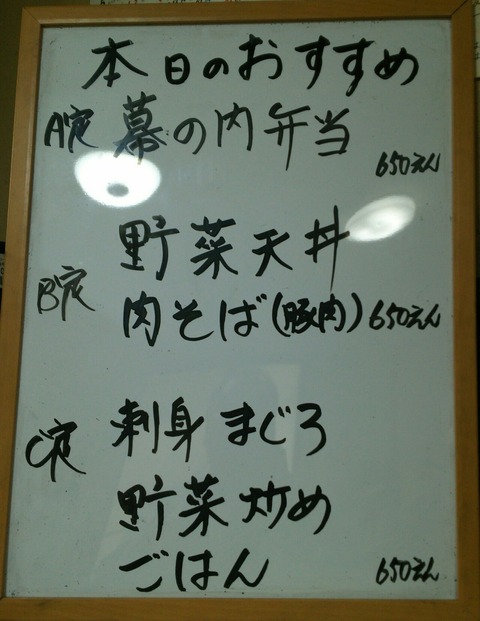 本日のおすすめ
A定 幕の内弁当
650えん
野菜天丼
B定 肉そば(豚肉) 650えん
C定 刺身 まぐろ
野菜炒め
ごはん 650えん